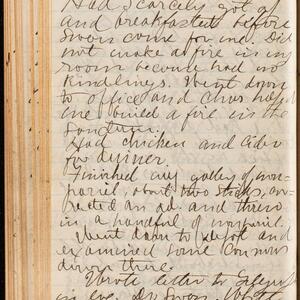 Had scarcely got up
and breakfasted before
Swom come for me. Did
not make a fire in my
room because had no
kindlings. Went down
to office and Chas helped
me build a fire in the
sanctum.
Had chicken and cider
for dinner.
Finished my galley of non-
pariel, about two sticks, cor-
rected an ad. and threw
in a handful of nonpariel.
Went down to depot and
examined some
down there.
Wrote letter to
in eve. Dr Swom